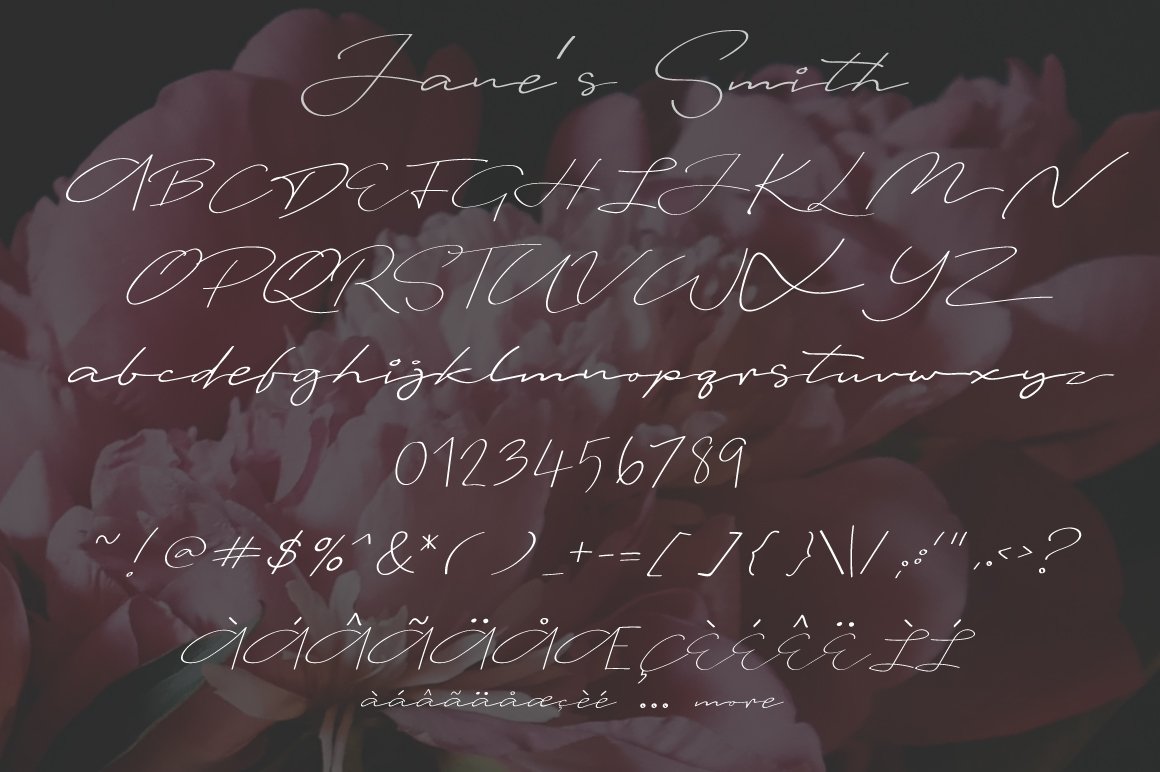 Jane's Smith
ABCDEFGHIJKLMN
OPQRSTUVWXYZ
abcdefghijklmnopqrstuvwxyz
0123456789
~!@#$%^&*()_+-=[]{}\|/;:'",.<>?
ÀÁÂÃÄÅÆÇÈÉÊËÌÍ
àáâãäåæçèé ... more